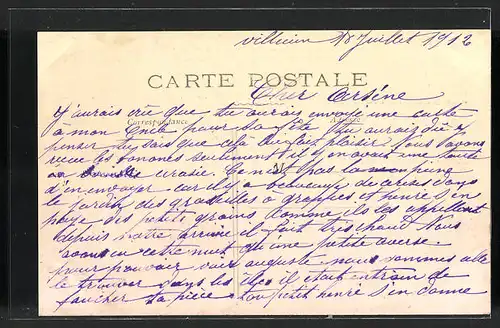 Juillet 1912
CARTE POSTALE
Cher Arsène
Correspondance
J'aurais cru que tu aurais envoyé une carte
à mon Oncle pour sa fête tu aurais dû y
penser tu sais que cela lui fait plaisir. Nous avons
reçu les bananes seulement il y en avait une toute
écrasée. Ce n'est pas la peine
d'en envoyer car il y a beaucoup de cerises dans
le jardin des groseilles à grappes et henri s'en
paye des petits grains comme ils les appellent
depuis notre arrivée il fait très chaud Nous
avons eu cette nuit qu'une petite averse.
pour pouvoir voir auguste nous sommes allé
le trouver dans les il était entrain de
faucher sa pièce tout petit henri s'en donne